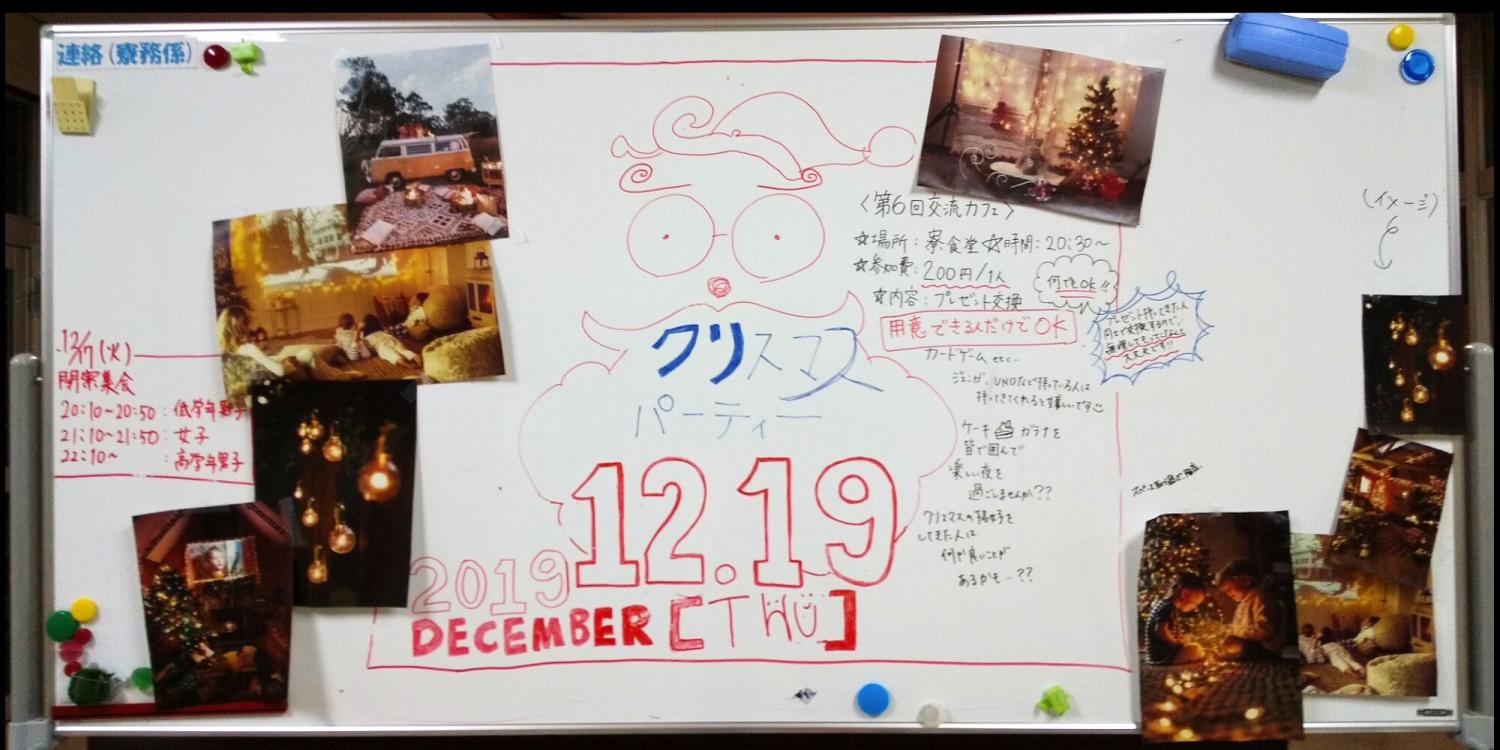 連絡(寮務係)
12/17(火)
閉寮集会
20:10~20:50:低学年男子
21:10~21:50:女子
22:10~ :高学年男子
クリスマス
パーティー
2019 12.19
DECEMBER [THU]
〈第6回交流カフェ〉
☆場所:寮食堂 ☆時間:20:30~
☆参加費:200円/1人
☆内容:プレゼント交換
何でもOK!!
用意できる人だけでOK
プレゼント持ってきた人
同士で交換するので、
無理してもってこなくて
大丈夫です!!
カードゲーム etc…
ジェンガ、UNOなど持っている人は
持ってきてくれると嬉しいです
ケーキ ガラナを
皆で囲んで
楽しい夜を
過ごしませんか??
クリスマスの格好を
してきた人は
何か良いことが
あるかも…??
(イメージ)